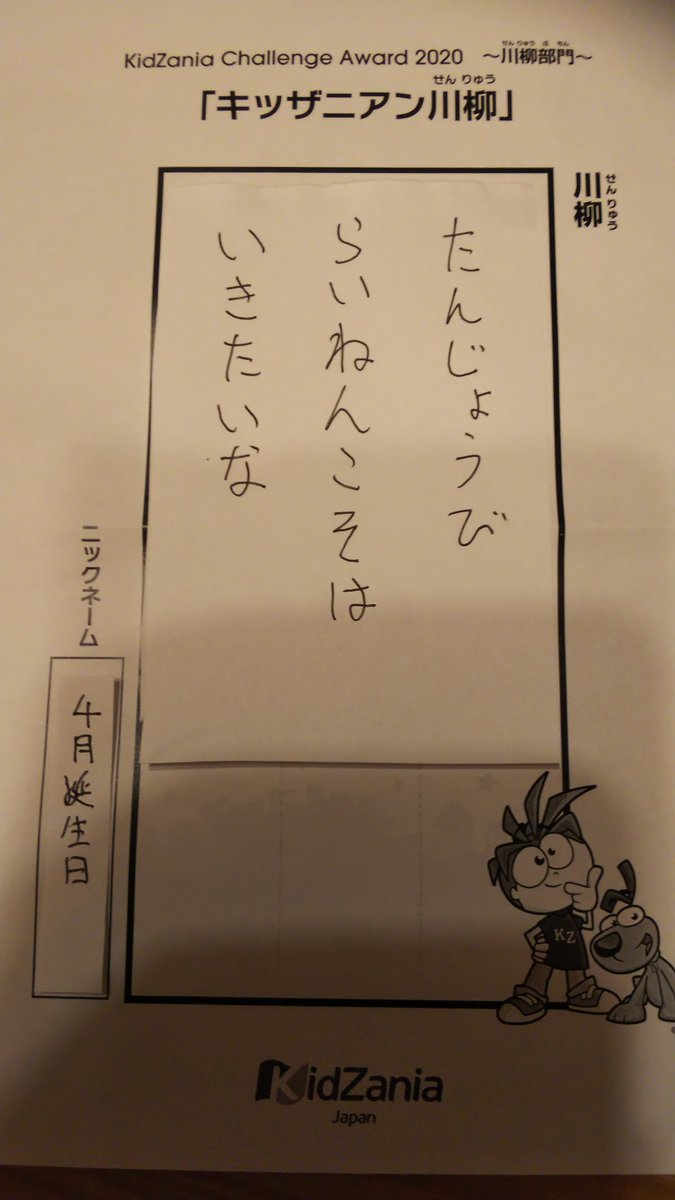 KidZania Challenge Award 2020 ～川柳部門～
せんりゅう ぶ もん
せん りゅう
「キッザニアン川柳」
川柳
せんりゅう
たんじょうび
らいねんこそは
いきたいな
ニックネーム
4月誕生日
KZ
KidZania
Japan